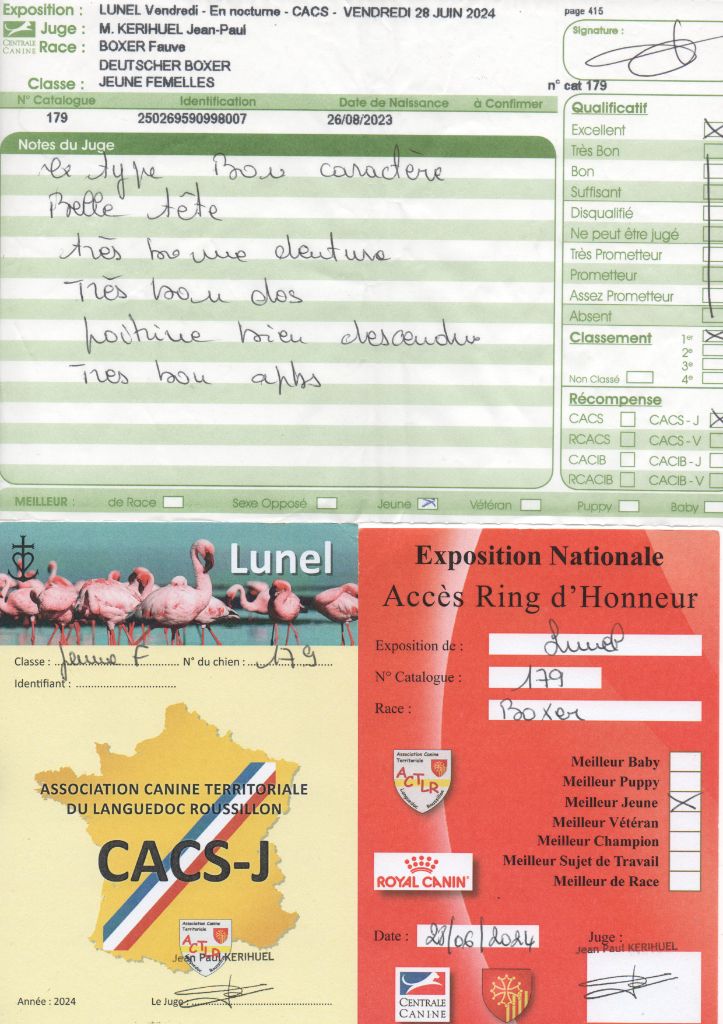 Exposition : LUNEL Vendredi - En nocturne - CACS - VENDREDI 28 JUIN 2024
page 415
Juge : M. KERIHUEL Jean-Paul
Signature :
CENTRALE CANINE
Race : BOXER Fauve
DEUTSCHER BOXER
Classe : JEUNE FEMELLES
n° cat 179
N° Catalogue Identification Date de Naissance à Confirmer
179 250269590998007 26/08/2023
Notes du Juge
type Bon caractère
Belle tête
très bonne denture
Très bon dos
poitrine bien descendue
Très bon aplbs
Qualificatif
Excellent
Très Bon
Bon
Suffisant
Disqualifié
Ne peut être jugé
Très Prometteur
Prometteur
Assez Prometteur
Absent
Classement 1er
2e
3e
Non Classé 4e
Récompense
CACS CACS - J
RCACS CACS - V
CACIB CACIB - J
RCACIB CACIB - V
MEILLEUR : de Race Sexe Opposé Jeune Vétéran Puppy Baby
Lunel
Classe : Jeune F N° du chien : 179
Identifiant :
ASSOCIATION CANINE TERRITORIALE
DU LANGUEDOC ROUSSILLON
CACS-J
Association Canine
Territoriale
ACTLR
Jean Paul KERIHUEL
Année : 2024 Le Juge :
Exposition Nationale
Accès Ring d'Honneur
Exposition de : Lunel
N° Catalogue : 179
Race : Boxer
Association Canine
Territoriale
ACTLR
Languedoc Roussillon
Meilleur Baby
Meilleur Puppy
Meilleur Jeune
Meilleur Vétéran
Meilleur Champion
Meilleur Sujet de Travail
Meilleur de Race
ROYAL CANIN
Date : 28/06/2024 Juge :
Jean Paul KERIHUEL
CENTRALE
CANINE